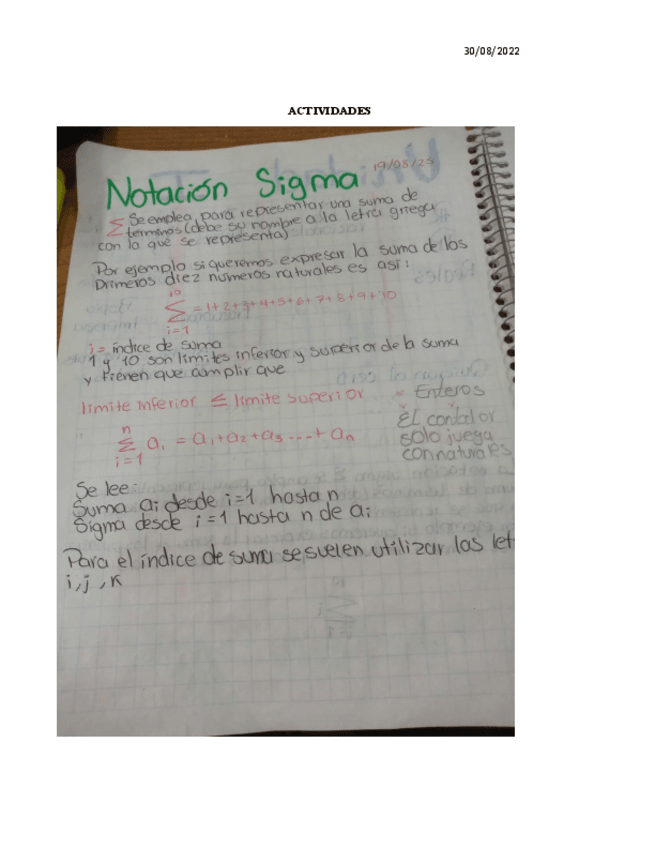 30/08/2022
ACTIVIDADES
Notación Sigma 19/08/25
∑ Se emplea para representar una suma de
terminos (debe su nombre a la letra griega
con la que se representa)
Por ejemplo si queremos expresar la suma de los
Primeros diez numeros naturales es así:
10
∑ = 1+2+3+4+5+6+7+8+9+10
i=1
i = índice de suma
1 y 10 son limites inferior y superior de la suma
y tienen que cumplir que
limite inferior ≤ limite superior
Enteros
El contador
solo juega
con naturales
n
∑ ai = a1+a2+a3 ...+ an
i=1
Se lee:
Suma ai desde i=1 hasta n
Sigma desde i=1 hasta n de ai
Para el índice de suma se suelen utilizar las let
i, j, k